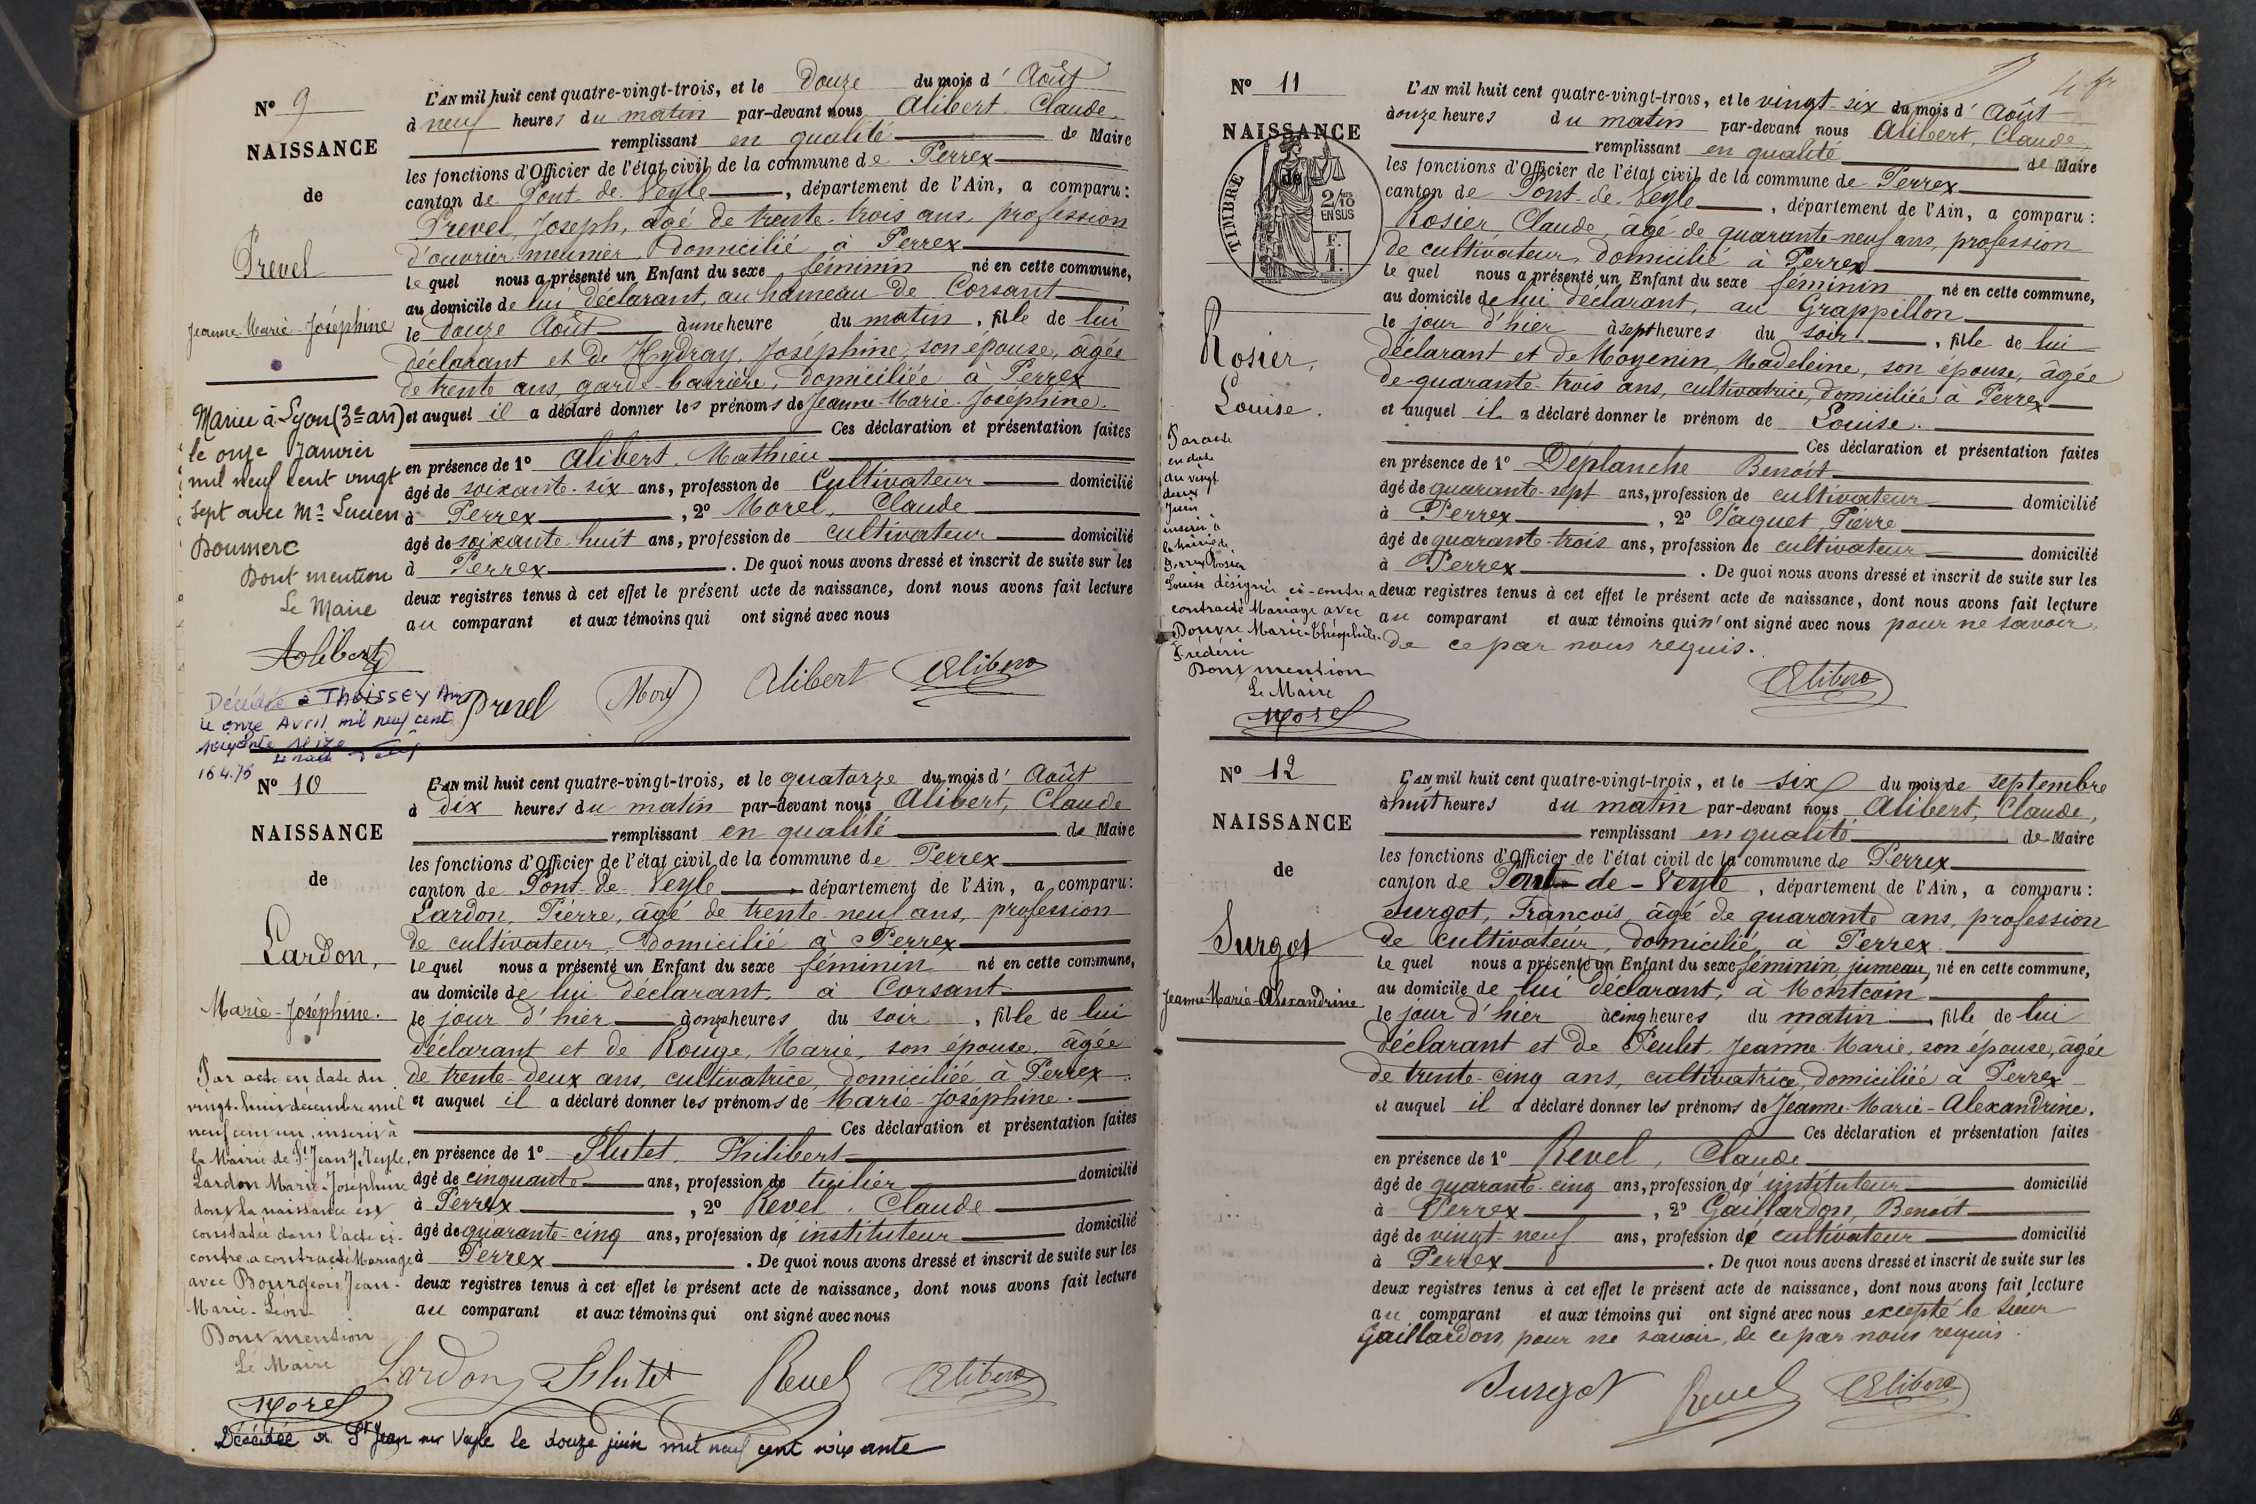 N° 9
NAISSANCE
de
Prevel
Jeanne-Marie-Joséphine
Mariée à Lyon (3e arr)
le onze Janvier
mil neuf cent vingt
sept avec Mr Lucien
Doumerc
Dont mention
Le Maire
Alibert
Décédée à THOISSEY Ain
le onze Avril mil neuf cent
soixante seize
16.4.76
L'AN mil huit cent quatre-vingt-trois, et le douze du mois d'Août
à neuf heures du matin par-devant nous Alibert, Claude,
remplissant en qualité de Maire
les fonctions d'Officier de l'état civil de la commune de Perrex
canton de Pont-de-Veyle, département de l'Ain, a comparu:
Prevel, Joseph, âgé de trente-trois ans, profession
d'ouvrier meunier, domicilié à Perrex
lequel nous a présenté un Enfant du sexe féminin né en cette commune,
au domicile de lui déclarant, au hameau de Corsant
le douze Août à une heure du matin, fille de lui
déclarant et de Hydray, Joséphine, son épouse, âgée
de trente ans, garde-barrière, domiciliée à Perrex
et auquel il a déclaré donner les prénoms de Jeanne-Marie-Joséphine.
Ces déclaration et présentation faites
en présence de 1° Alibert, Mathieu
âgé de soixante-six ans, profession de Cultivateur domicilié
à Perrex, 2° Morel, Claude
âgé de soixante-huit ans, profession de cultivateur domicilié
à Perrex. De quoi nous avons dressé et inscrit de suite sur les
deux registres tenus à cet effet le présent acte de naissance, dont nous avons fait lecture
au comparant et aux témoins qui ont signé avec nous
Prevel Morel Alibert Alibert
N° 10
NAISSANCE
de
Lardon,
Marie-Joséphine.
Par acte en date du
vingt-huit décembre mil
neuf cent un, inscrit à
la Mairie de St Jean s/ Veyle,
Lardon Marie-Joséphine
dont la naissance est
constatée dans l'acte ci-
contre a contracté Mariage
avec Bourgeois Jean-
Marie-Léon
Dont mention
Le Maire
Morel
Décédée à St Jean sur Veyle le douze juin mil neuf cent soixante
L'AN mil huit cent quatre-vingt-trois, et le quatorze du mois d'Août
à dix heures du matin par-devant nous Alibert, Claude
remplissant en qualité de Maire
les fonctions d'Officier de l'état civil de la commune de Perrex
canton de Pont-de-Veyle, département de l'Ain, a comparu:
Lardon, Pierre, âgé de trente-neuf ans, profession
de cultivateur, domicilié à Perrex
lequel nous a présenté un Enfant du sexe féminin né en cette commune,
au domicile de lui déclarant, à Corsant
le jour d'hier à onze heures du soir, fille de lui
déclarant et de Rouge, Marie, son épouse, âgée
de trente-deux ans, cultivatrice, domiciliée à Perrex
et auquel il a déclaré donner les prénoms de Marie-Joséphine.
Ces déclaration et présentation faites
en présence de 1° Plutet, Philibert
âgé de cinquante ans, profession de tuilier domicilié
à Perrex, 2° Revel, Claude
âgé de quarante-cinq ans, profession d'instituteur domicilié
à Perrex. De quoi nous avons dressé et inscrit de suite sur les
deux registres tenus à cet effet le présent acte de naissance, dont nous avons fait lecture
au comparant et aux témoins qui ont signé avec nous
Lardon Plutet Revel Alibert
N° 11
NAISSANCE
de
TIMBRE
2/10
EN SUS
F.
1.
Rosier,
Louise.
Par acte
en date
du vingt
deux
Juin
inscrit à
la Mairie de
Perrex Rosier
Louise désignée ci-contre a
contracté Mariage avec
Marie-Théophile-
Frédéric
Dont mention
Le Maire
Morel
L'AN mil huit cent quatre-vingt-trois, et le vingt-six du mois d'Août
à douze heures du matin par-devant nous Alibert, Claude,
remplissant en qualité de Maire
les fonctions d'Officier de l'état civil de la commune de Perrex
canton de Pont-de-Veyle, département de l'Ain, a comparu:
Rosier, Claude, âgé de quarante-neuf ans, profession
de cultivateur, domicilié à Perrex
lequel nous a présenté un Enfant du sexe féminin né en cette commune,
au domicile de lui déclarant, au Grappillon
le jour d'hier à sept heures du soir, fille de lui
déclarant et de Moyenin, Madeleine, son épouse, âgée
de quarante-trois ans, cultivatrice, domiciliée à Perrex
et auquel il a déclaré donner le prénom de Louise.
Ces déclaration et présentation faites
en présence de 1° Déplanche Benoît
âgé de quarante-sept ans, profession de cultivateur domicilié
à Perrex, 2° Paquet, Pierre
âgé de quarante-trois ans, profession de cultivateur domicilié
à Perrex. De quoi nous avons dressé et inscrit de suite sur les
deux registres tenus à cet effet le présent acte de naissance, dont nous avons fait lecture
au comparant et aux témoins qui n'ont signé avec nous pour ne savoir,
de ce par nous requis.
Alibert
N° 12
NAISSANCE
de
Surgot
Jeanne-Marie-Alexandrine
L'AN mil huit cent quatre-vingt-trois, et le six du mois de septembre
à huit heures du matin par-devant nous Alibert, Claude,
remplissant en qualité de Maire
les fonctions d'Officier de l'état civil de la commune de Perrex
canton de Pont-de-Veyle, département de l'Ain, a comparu:
Surgot, François, âgé de quarante ans, profession
de cultivateur, domicilié à Perrex
lequel nous a présenté un Enfant du sexe féminin, jumeau, né en cette commune,
au domicile de lui déclarant, à Montcoin
le jour d'hier à cinq heures du matin, fille de lui
déclarant et de Peulet, Jeanne-Marie, son épouse, âgée
de trente-cinq ans, cultivatrice, domiciliée à Perrex
et auquel il a déclaré donner les prénoms de Jeanne-Marie-Alexandrine.
Ces déclaration et présentation faites
en présence de 1° Revel, Claude
âgé de quarante-cinq ans, profession d'instituteur domicilié
à Perrex, 2° Gaillardon, Benoît
âgé de vingt-neuf ans, profession de cultivateur domicilié
à Perrex. De quoi nous avons dressé et inscrit de suite sur les
deux registres tenus à cet effet le présent acte de naissance, dont nous avons fait lecture
au comparant et aux témoins qui ont signé avec nous excepté le sieur
Gaillardon, pour ne savoir, de ce par nous requis.
Surgot Revel Alibert